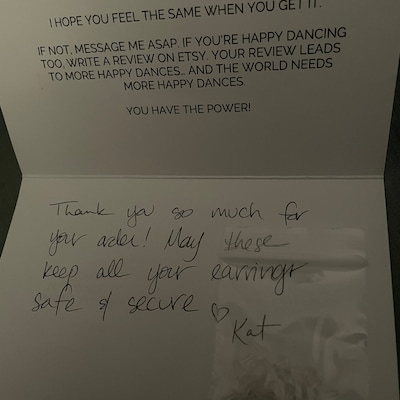 I HOPE YOU FEEL THE SAME WHEN YOU GET IT.
IF NOT, MESSAGE ME ASAP. IF YOU'RE HAPPY DANCING
TOO, WRITE A REVIEW ON ETSY. YOUR REVIEW LEADS
TO MORE HAPPY DANCES... AND THE WORLD NEEDS
MORE HAPPY DANCES.
YOU HAVE THE POWER!
Thank you so much for
your order! May these
keep all your earrings
safe & secure ♡
Kat